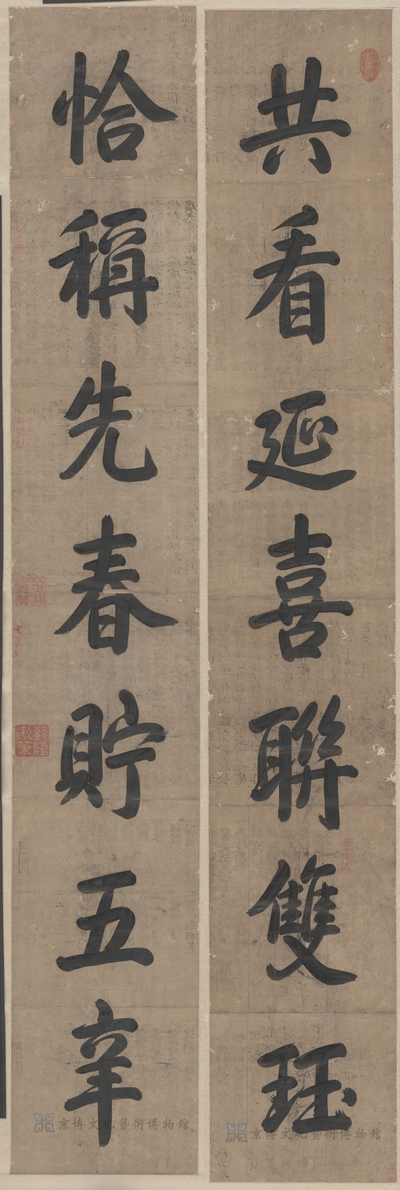 共看延喜聯雙珏
恰稱先春貯五辛
京博文化藝術博物館
京博文化藝術博物館